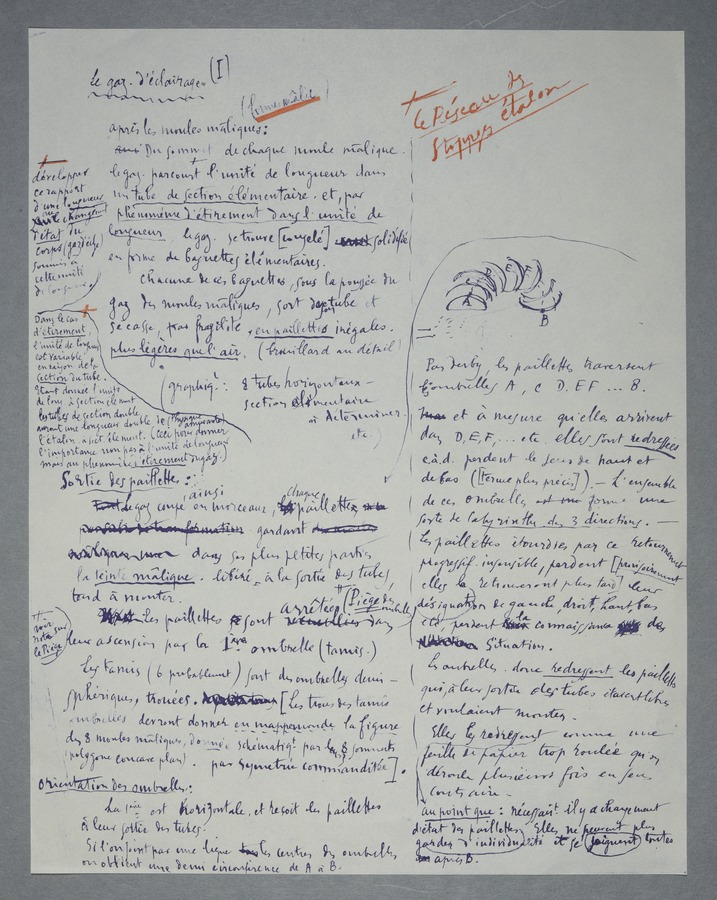 Le gaz d'éclairage (I)
(formes mâlic)
après les moules mâliques:
Du sommet de chaque moule mâlique.
le gaz parcourt l'unité de longueur dans
un tube de section élémentaire. et, par
phénomène d'étirement dans l'unité de
longueur, le gaz se trouve [congelé] solidifié
en forme de baguettes élémentaires.
Chacune de ces baguettes, sous la poussée du
gaz des moules mâliques, sort de son tube et
se casse, par fragilité, en paillettes inégales.
plus légères que l'air. (brouillard au détail)
(graphiq.: 8 tubes horizontaux -
section élémentaire
à déterminer.
etc.)
développer
ce rapport
d'une longueur
au changement
d'état du
corps (gardé)
soumis à
cette unité
de longueur
Dans le cas
d'étirement,
l'unité de longueur
est variable
en raison de la
section du tube.
Etant donnée l'unité
de long. à section élément
les tubes de section double
auront une longueur double de (Physique amusante)
l'étalon à sect. élément. (Ceci pour donner
l'importance non pas à l'unité de longueur
mais au phénomène étirement du gaz)
Sortie des paillettes:
Le gaz coupé ainsi en morceaux, chaque paillette
gardant
dans ses plus petites parties
la teinte mâlique. libéré à la sortie des tubes,
tend à monter.
Les paillettes sont arrêtées (Piège des ombrelles) dans
leur ascension par la 1ère ombrelle (tamis.)
voir
note sur
le Piège
Les tamis (6 probablement) sont des ombrelles demi-
sphériques, trouées. [Les trous des tamis
ombrelles devront donner en mappemonde la figure
des 8 moules mâliques, donnée schématiq. par les 8 sommets
(polygone concave plant. par symétrie commanditée].
Orientation des ombrelles:
La 1ère est horizontale, et reçoit les paillettes
à leur sortie des tubes.
Si l'on joint par une ligne les centres des ombrelles
on obtient une demi circonférence de A à B.
Le Réseau des
Stoppages étalon
A C D E F
B
Pas derby, les paillettes traversent
les ombrelles A, C D. E F ... B.
et à mesure qu'elles arrivent
dans D, E, F, ... etc elles sont redressées
c.à.d. perdent le sens de haut et
de bas ([terme plus précis]). - L'ensemble
de ces ombrelles forme une
sorte de labyrinthe des 3 directions. -
Les paillettes étourdies par ce retournement
progressif insensible, perdent [provisoirement
elles la retrouveront plus tard] leur
désignation de gauche, droit, haut, bas
etc, perdent la connaissance de
situation.
Les ombrelles donc redressent les paillettes
qui, à leur sortie des tubes étaient libres
et voulaient monter.
Elles les redressent comme une
feuille de papier trop roulée qu'on
déroule plusieurs fois en sens
contraire -
au point que: nécessairt. il y a changement
d'état des paillettes, Elles ne peuvent plus
garder d'individualité et se joignent toutes
après B.